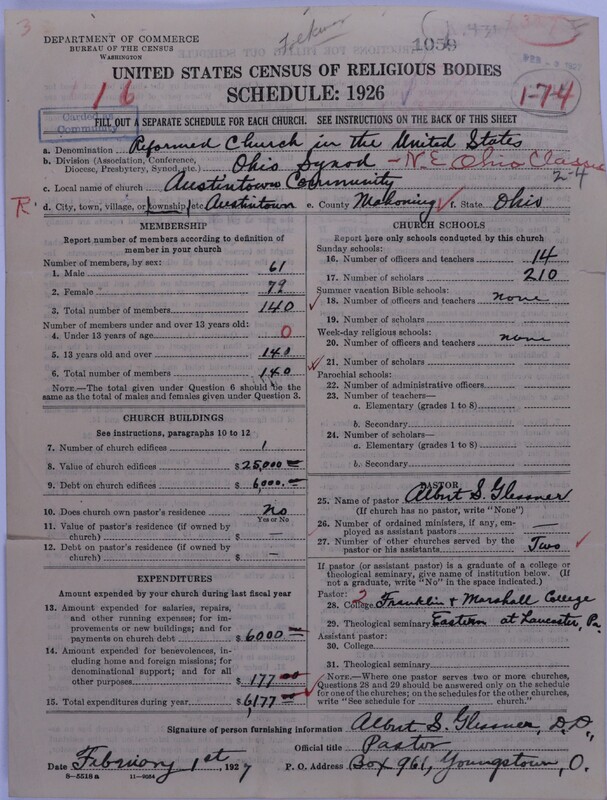 3
DEPARTMENT OF COMMERCE
BUREAU OF THE CENSUS
WASHINGTON
1058
UNITED STATES CENSUS OF RELIGIOUS BODIES
SCHEDULE: 1926
1 6
1-74
Carded as
Community
FILL OUT A SEPARATE SCHEDULE FOR EACH CHURCH. SEE INSTRUCTIONS ON THE BACK OF THIS SHEET
a. Denomination Reformed Church in the United States
b. Division (Association, Conference, Diocese, Presbytery, Synod, etc.) Ohio Synod - N.E. Ohio Classis
2-4
c. Local name of church Austintown Community
R. d. City, town, village, or township, etc Austintown e. County Mahoning f. State Ohio
MEMBERSHIP
Report number of members according to definition of
member in your church
Number of members, by sex:
1. Male 61
2. Female 79
3. Total number of members 140
Number of members under and over 13 years old:
4. Under 13 years of age 0
5. 13 years old and over 140
6. Total number of members 140
NOTE.—The total given under Question 6 should be the
same as the total of males and females given under Question 3.
CHURCH BUILDINGS
See instructions, paragraphs 10 to 12
7. Number of church edifices 1
8. Value of church edifices $ 25,000
9. Debt on church edifices $ 6,000.
10. Does church own pastor's residence No
Yes or No
11. Value of pastor's residence (if owned by
church) $ —
12. Debt on pastor's residence (if owned by
church) $ —
EXPENDITURES
Amount expended by your church during last fiscal year
13. Amount expended for salaries, repairs,
and other running expenses; for im-
provements or new buildings; and for
payments on church debt $ 6000
14. Amount expended for benevolences,
including home and foreign missions; for
denominational support; and for all
other purposes $ 177 00
15. Total expenditures during year $ 6177
CHURCH SCHOOLS
Report here only schools conducted by this church
Sunday schools:
16. Number of officers and teachers 14
17. Number of scholars 210
Summer vacation Bible schools:
18. Number of officers and teachers none
19. Number of scholars
Week-day religious schools:
20. Number of officers and teachers none
21. Number of scholars
Parochial schools:
22. Number of administrative officers
23. Number of teachers—
a. Elementary (grades 1 to 8)
b. Secondary
24. Number of scholars—
a. Elementary (grades 1 to 8)
b. Secondary
PASTOR
25. Name of pastor Albert S. Glessner
(If church has no pastor, write "None")
26. Number of ordained ministers, if any, em-
ployed as assistant pastors —
27. Number of other churches served by the
pastor or his assistants Two
If pastor (or assistant pastor) is a graduate of a college or
theological seminary, give name of institution below. (If
not a graduate, write "No" in the space indicated.)
Pastor: 2
28. College Franklin & Marshall College
29. Theological seminary Eastern at Lancaster, Pa.
Assistant pastor:
30. College
31. Theological seminary
NOTE.—Where one pastor serves two or more churches,
Questions 28 and 29 should be answered only on the schedule
for one of the churches; on the schedules for the other churches,
write "See schedule for church."
Signature of person furnishing information Albert S. Glessner, D.D.,
Official title Pastor
Date February 1st, 1927 P. O. Address Box 961, Youngstown, O.
8—5518 a 11—9224